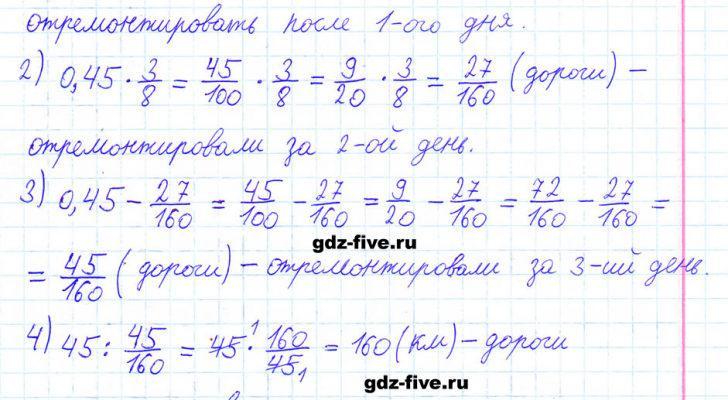 отремонтировать после 1-ого дня.
2) 0,45 · 3/8 = 45/100 · 3/8 = 9/20 · 3/8 = 27/160 (дороги) –
отремонтировали за 2-ой день.
3) 0,45 – 27/160 = 45/100 – 27/160 = 9/20 – 27/160 = 72/160 – 27/160 =
gdz-five.ru
= 45/160 (дороги) – отремонтировали за 3-ий день.
4) 45 : 45/160 = 45¹ · 160/45₁ = 160 (км) – дороги
gdz-five.ru